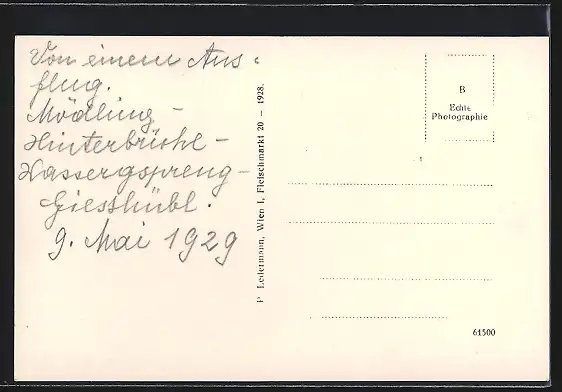 Von einem Aus-
flug.
Mödling -
Hinterbrühl -
Wassergspreng -
Giesshübl.
9. Mai 1929
P. Ledermann, Wien I, Fleischmarkt 20 - 1928.
B
Echte
Photographie
61500